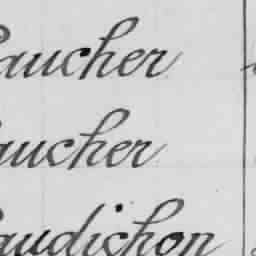 Gaucher
Gaucher
Gaudichon